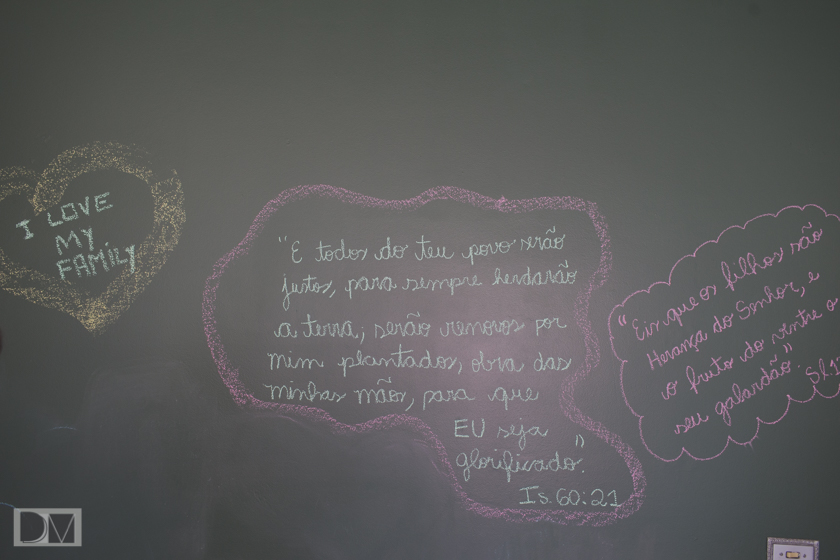 I LOVE
MY
FAMILY
"E todos do teu povo serão
justos, para sempre herdarão
a terra; serão renovos por
mim plantados, obra das
minhas mãos, para que
EU seja
glorificado".
Is. 60:21
"Eis que os filhos são
Herança do Senhor, e
o fruto do ventre o
seu galardão."
Sl. 1
DM